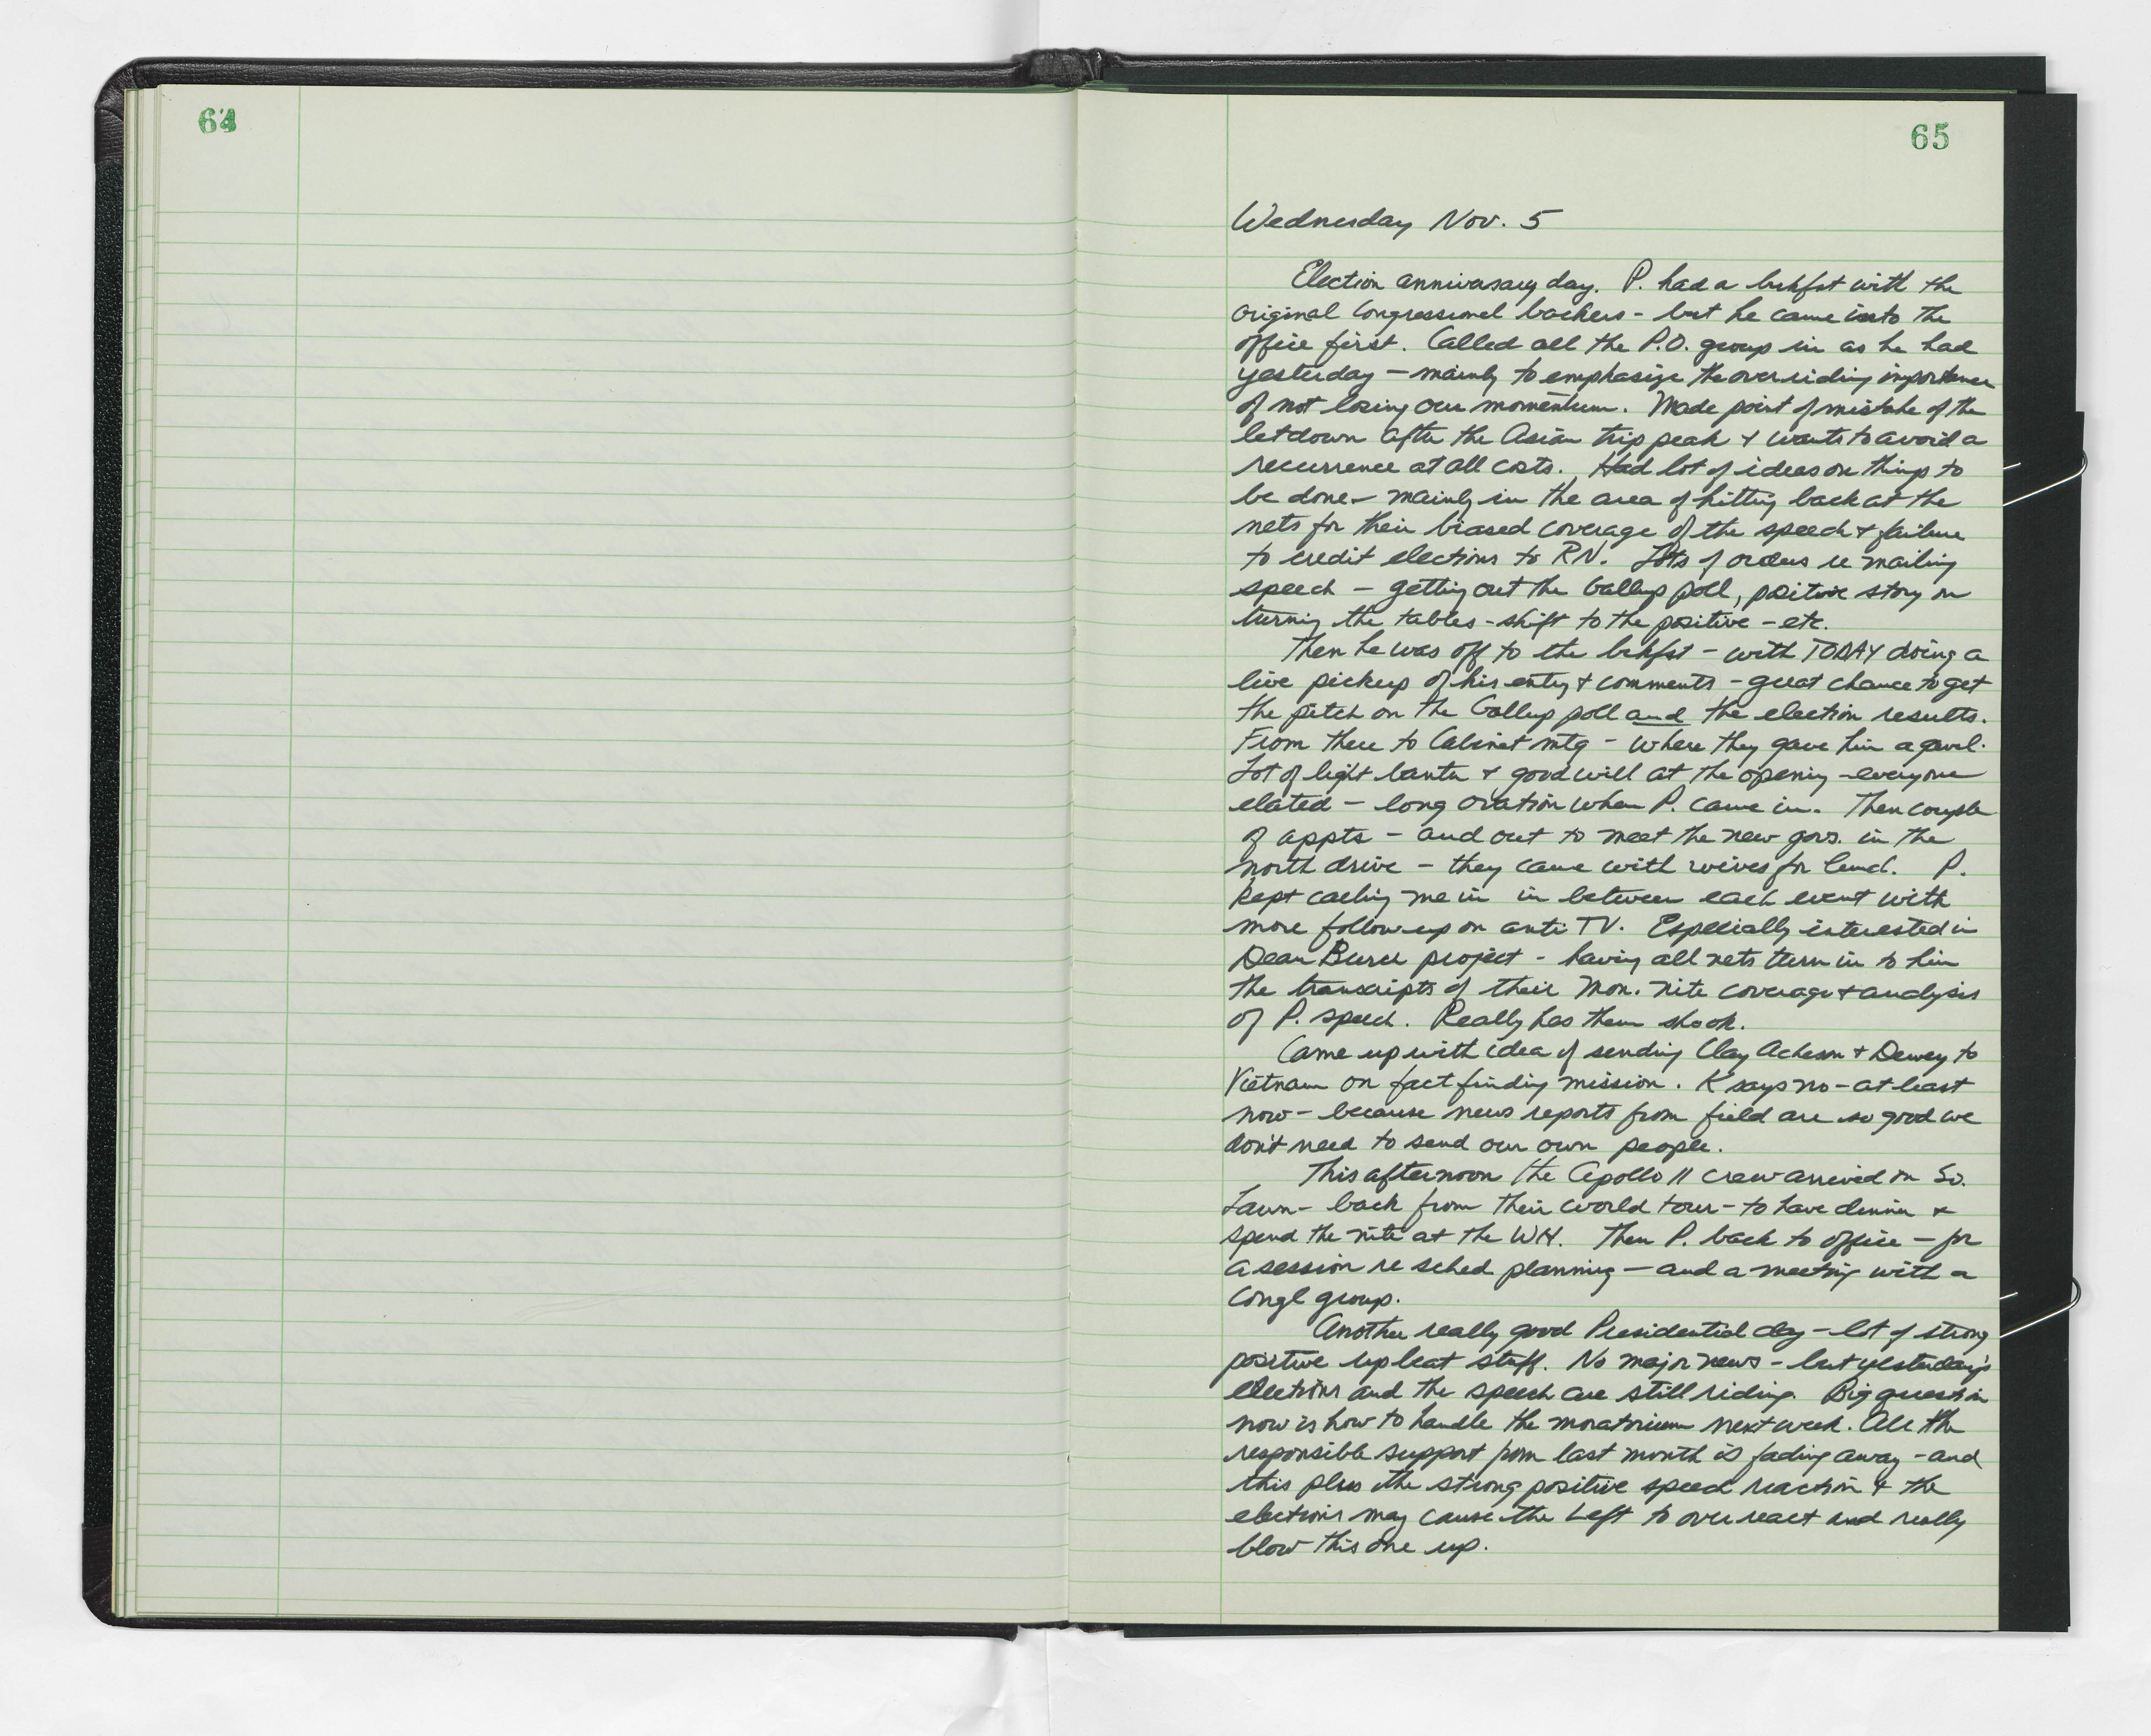 64
65
Wednesday Nov. 5
Election anniversary day. P. had a brkfst with the
original Congressional backers - but he came into the
office first. Called all the P.O. group in as he had
yesterday - mainly to emphasize the overriding importance
of not losing our momentum. Made point of mistake of the
letdown after the Asian trip peak & wants to avoid a
recurrence at all costs. Had lot of ideas on things to
be done - mainly in the area of hitting back at the
nets for their biased coverage of the speech & failure
to credit elections to RN. Lots of orders re mailing
speech - getting out the Gallup poll, positive story on
turning the tables - shift to the positive - etc.
Then he was off to the brkfst - with TODAY doing a
live pickup of his entry & comments - great chance to get
the pitch on the Gallup poll and the election results.
From there to Cabinet mtg - where they gave him a gavel.
Lot of light banter & good will at the opening - everyone
elated - long ovation when P. came in. Then couple
of appts - and out to meet the new govs. in the
north drive - they came with wives for lunch. P.
kept calling me in in between each event with
more followup on anti TV. Especially interested in
Dean Burch project - having all nets turn in to him
the transcripts of their Mon. nite coverage & analysis
of P. speech. Really has them shook.
Came up with idea of sending Clay Acheson & Dewey to
Vietnam on fact finding mission. K says no - at least
now - because news reports from field are so good we
don't need to send our own people.
This afternoon the Apollo 11 crew arrived on So.
Lawn - back from their world tour - to have dinner &
spend the nite at the WH. Then P. back to office - for
a session re sched planning - and a meeting with a
Congl group.
Another really good Presidential day - lot of strong
positive upbeat stuff. No major news - but yesterday's
elections and the speech are still riding. Big question
now is how to handle the moratorium next week. All the
responsible support from last month is fading away - and
this plus the strong positive speech reaction & the
elections may cause the Left to over react and really
blow this one up.